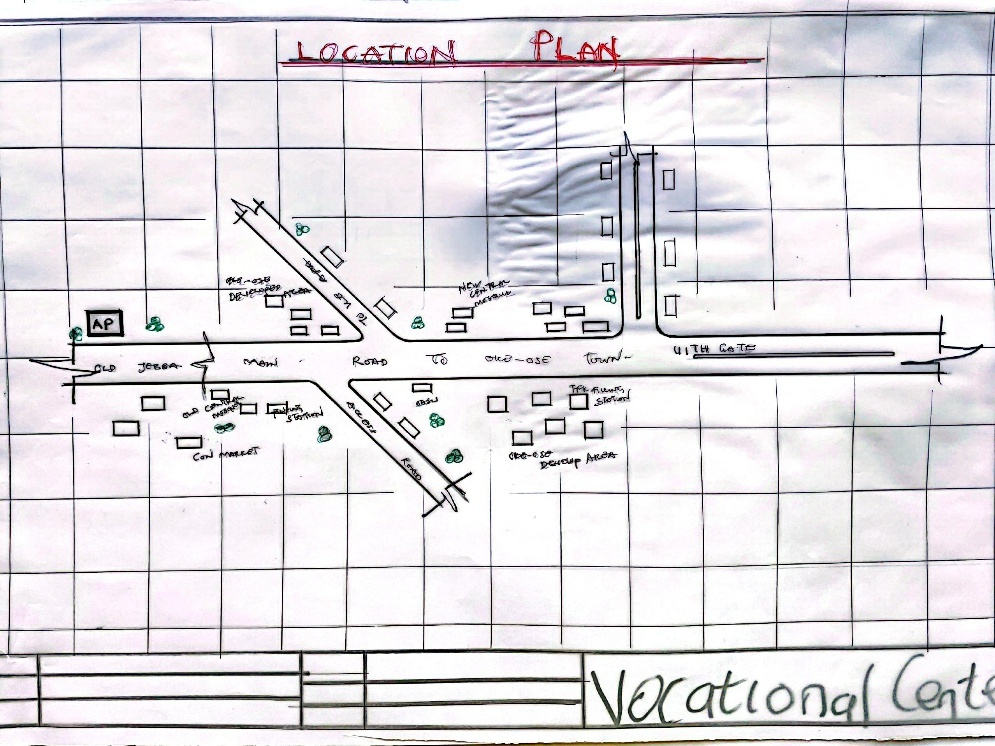 LOCATION PLAN
OKE-OSE
DEVELOPED AREA
NEW
CENTRAL
AP
TO
OLD JEBBA MAIN ROAD TO OKE-OSE TOWN
UITH GATE
OLD CENTRAL
MARKET
FILLING
STATION
COW MARKET
ACCESS
ROAD
FILLING
STATION
OKE-OSE
DEVELOP AREA
Vocational Cente